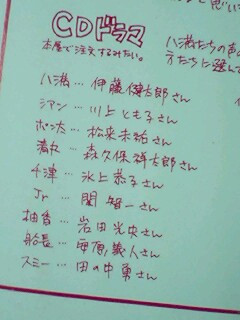 CDドラマ
本屋で注文するみたい。
八満たちの声
才たちに選んで
八満…伊藤健太郎さん
シアン…川上とも子さん
ポン太…松来未祐さん
清丸…森久保祥太郎さん
千津…氷上恭子さん
Jr…関智一さん
柚香…岩田光央さん
船長…西原義人さん
スミー…田の中勇さん